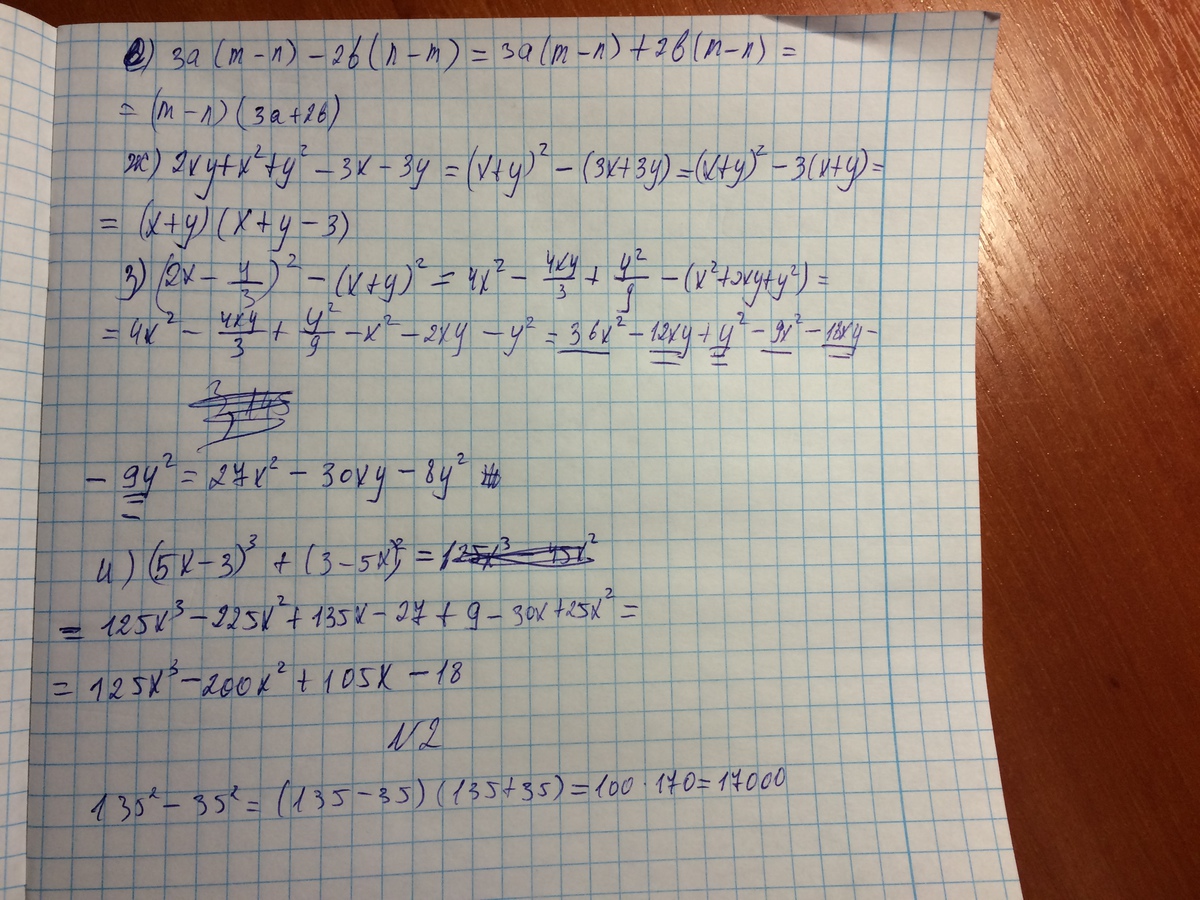 е) 3a(m-n)-2в(n-m)=3a(m-n)+2в(m-n)=
=(m-n)(3a+2в)
ж) 2xy+x²+y²-3x-3y=(x+y)²-(3x+3y)=(x+y)²-3(x+y)=
=(x+y)(x+y-3)
з) (2x-y/3)²-(x+y)²=4x²-4xy/3+y²/9-(x²+2xy+y²)=
=4x²-4xy/3+y²/9-x²-2xy-y²=36x²-12xy+y²-9x²-18xy-
-9y²=27x²-30xy-8y²
и) (5x-3)³+(3-5x)²=
=125x³-225x²+135x-27+9-30x+25x²=
=125x³-200x²+105x-18
N2
135²-35²=(135-35)(135+35)=100·170=17000